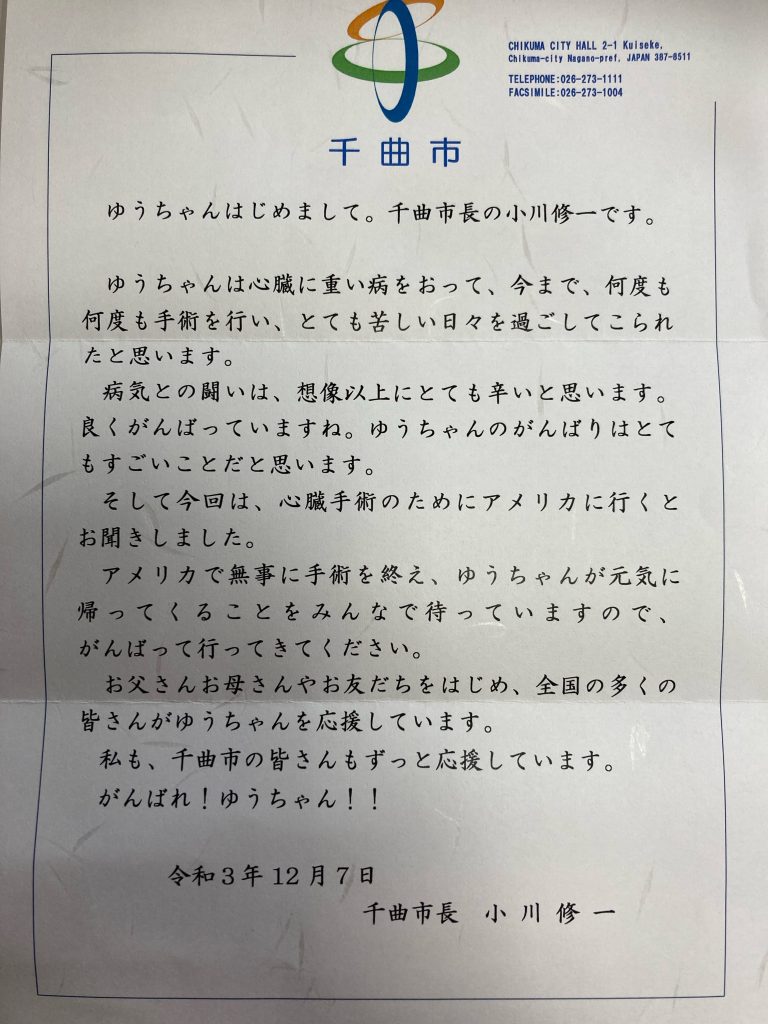 CHIKUMA CITY HALL 2-1 Kuiseke,
Chikuma-city Nagano-pref, JAPAN 387-8511
TELEPHONE:026-273-1111
FACSIMILE:026-273-1004
千曲市
ゆうちゃんはじめまして。千曲市長の小川修一です。
ゆうちゃんは心臓に重い病をおって、今まで、何度も
何度も手術を行い、とても苦しい日々を過ごしてこられ
たと思います。
病気との闘いは、想像以上にとても辛いと思います。
良くがんばっていますね。ゆうちゃんのがんばりはとて
もすごいことだと思います。
そして今回は、心臓手術のためにアメリカに行くと
お聞きしました。
アメリカで無事に手術を終え、ゆうちゃんが元気に
帰ってくることをみんなで待っていますので、
がんばって行ってきてください。
お父さんお母さんやお友だちをはじめ、全国の多くの
皆さんがゆうちゃんを応援しています。
私も、千曲市の皆さんもずっと応援しています。
がんばれ！ゆうちゃん！！
令和3年12月7日
千曲市長 小川修一